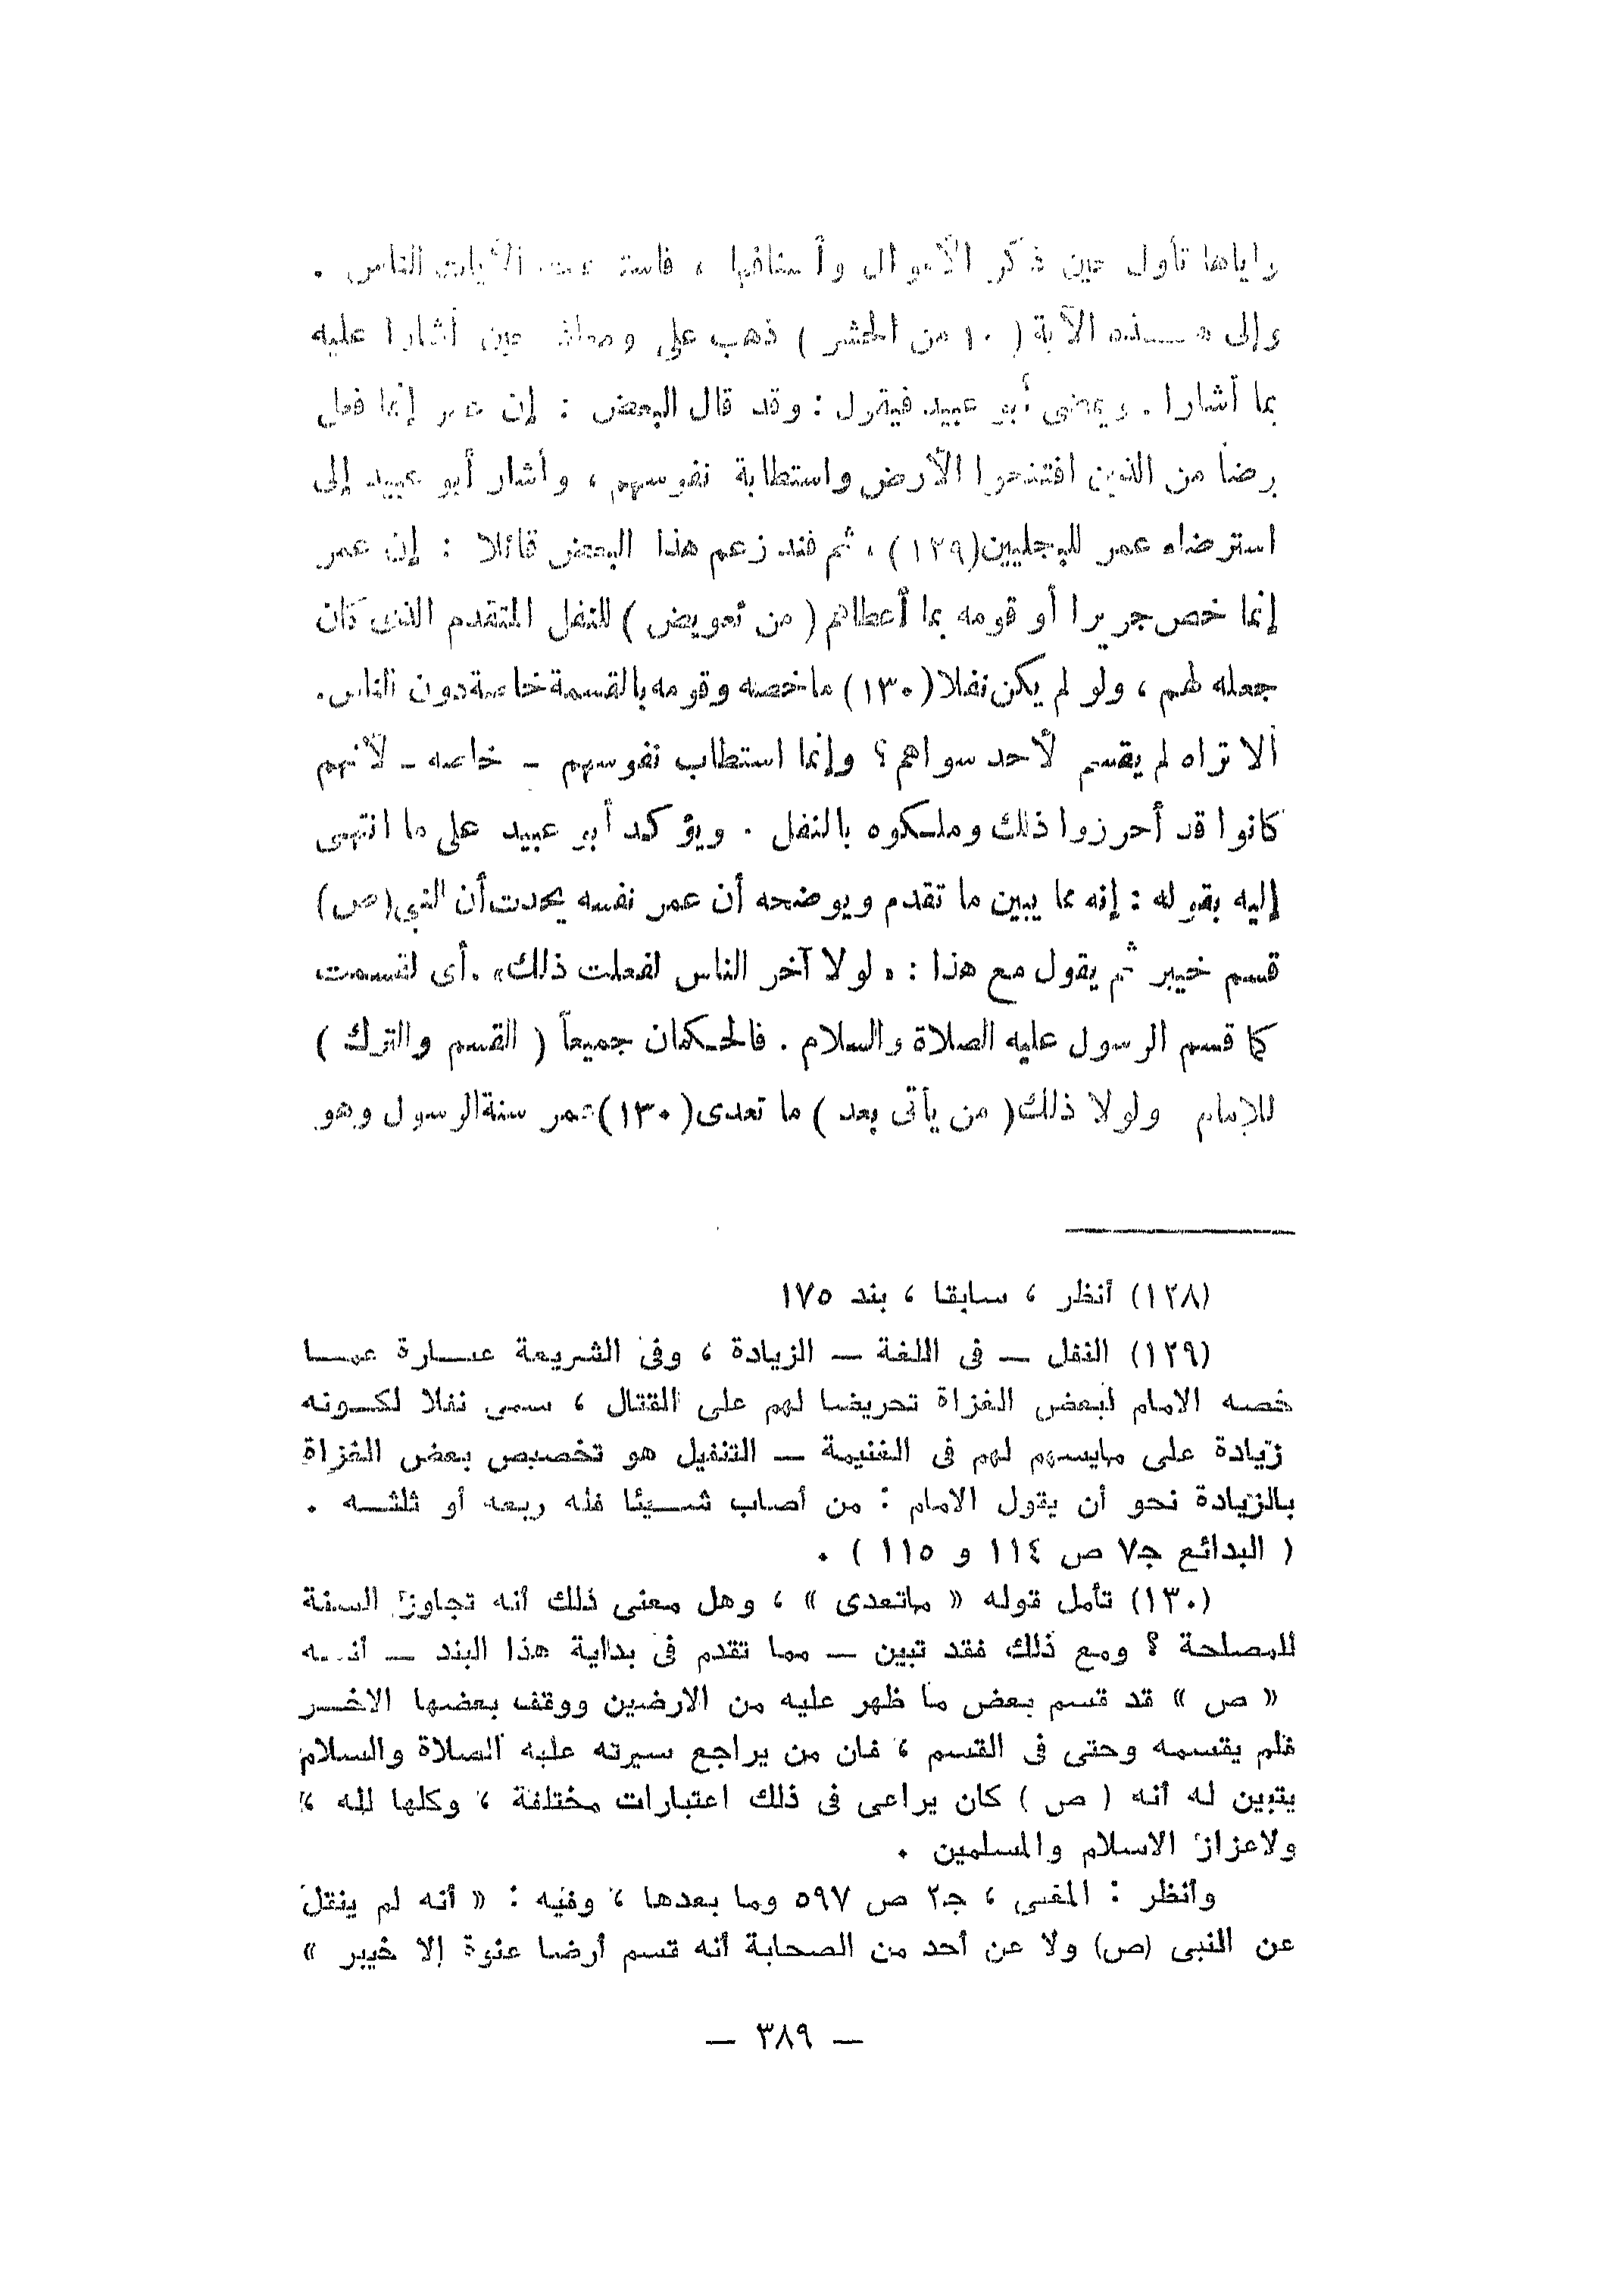 وإياها تأول حين ذكر الأموال وأصنافها ، فاستوعبت الآيات الناس .
وإلى هـــذه الآية ( ١٠ من الحشر ) ذهب على ومعاذ حين أشارا عليه
بما أشارا . ويمضى أبو عبيد فيقول : وقد قال البعض : إن عمر إنما فعل
برضا من الذين افتتحوا الأرض واستطابة نفوسهم ، وأشار أبو عبيد إلى
استرضاء عمر للبجليين(١٢٩) ، ثم فند زعم هذا البعض قائلا : إن عمر
إنما خص جريرا أو قومه بما أعطاهم ( من تعويض ) للنفل المتقدم الذى كان
جعله لهم ، ولو لم يكن نفلا(١٣٠) ما خصه وقومه بالقسمة خاصة دون الناس .
ألا تراه لم يقسم لأحد سواهم ؟ وإنما استطاب نفوسهم - خاصة - لأنهم
كانوا قد أحرزوا ذلك وملكوه بالنفل . ويؤكد أبو عبيد على ما انتهى
إليه بقوله : إنه مما يبين ما تقدم ويوضحه أن عمر نفسه يحدث أن النبي (ص)
قسم خيبر ثم يقول مع هذا : « لولا آخر الناس لفعلت ذلك» . أى لقسمت
كما قسم الرسول عليه الصلاة والسلام . فالحكمان جميعاً ( القسم والترك )
للإمام ولولا ذلك ( من يأتى بعد ) ما تعدى (١٣٠) عمر سنة الرسول وهو
(١٢٨) أنظر ، سابقا ، بند ١٧٥
(١٢٩) النفل — فى اللغة — الزيادة ، وفى الشريعة عبـــارة عمـــا
خصه الامام لبعض الغزاة تحريضا لهم على القتال ، سمى نفلا لكـــونه
زيادة على مايسهم لهم فى الغنيمة — التنفيل هو تخصيص بعض الغزاة
بالزيادة نحو أن يقول الامام : من أصاب شـــيئا فله ربعه أو ثلثـــه .
( البدائع ج٧ ص ١١٤ و ١١٥ ) .
(١٣٠) تأمل قوله « ماتعدى » ، وهل معنى ذلك أنه تجاوز السنة
للمصلحة ؟ ومع ذلك فقد تبين — مما تقدم فى بداية هذا البند — أنـــه
« ص » قد قسم بعض ما ظهر عليه من الارضين ووقف بعضها الاخـــر
فلم يقسمه وحتى فى القسم ، فان من يراجع سيرته عليه الصلاة والسلام
يتبين له أنه ( ص ) كان يراعى فى ذلك اعتبارات مختلفة ، وكلها لله ،
ولاعزاز الاسلام والمسلمين .
وأنظر : المغنى ، ج٢ ص ٥٩٧ وما بعدها ، وفيه : « أنه لم ينقل
عن النبى (ص) ولا عن أحد من الصحابة أنه قسم أرضا عنوة إلا خيبر »
— ٣٨٩ —